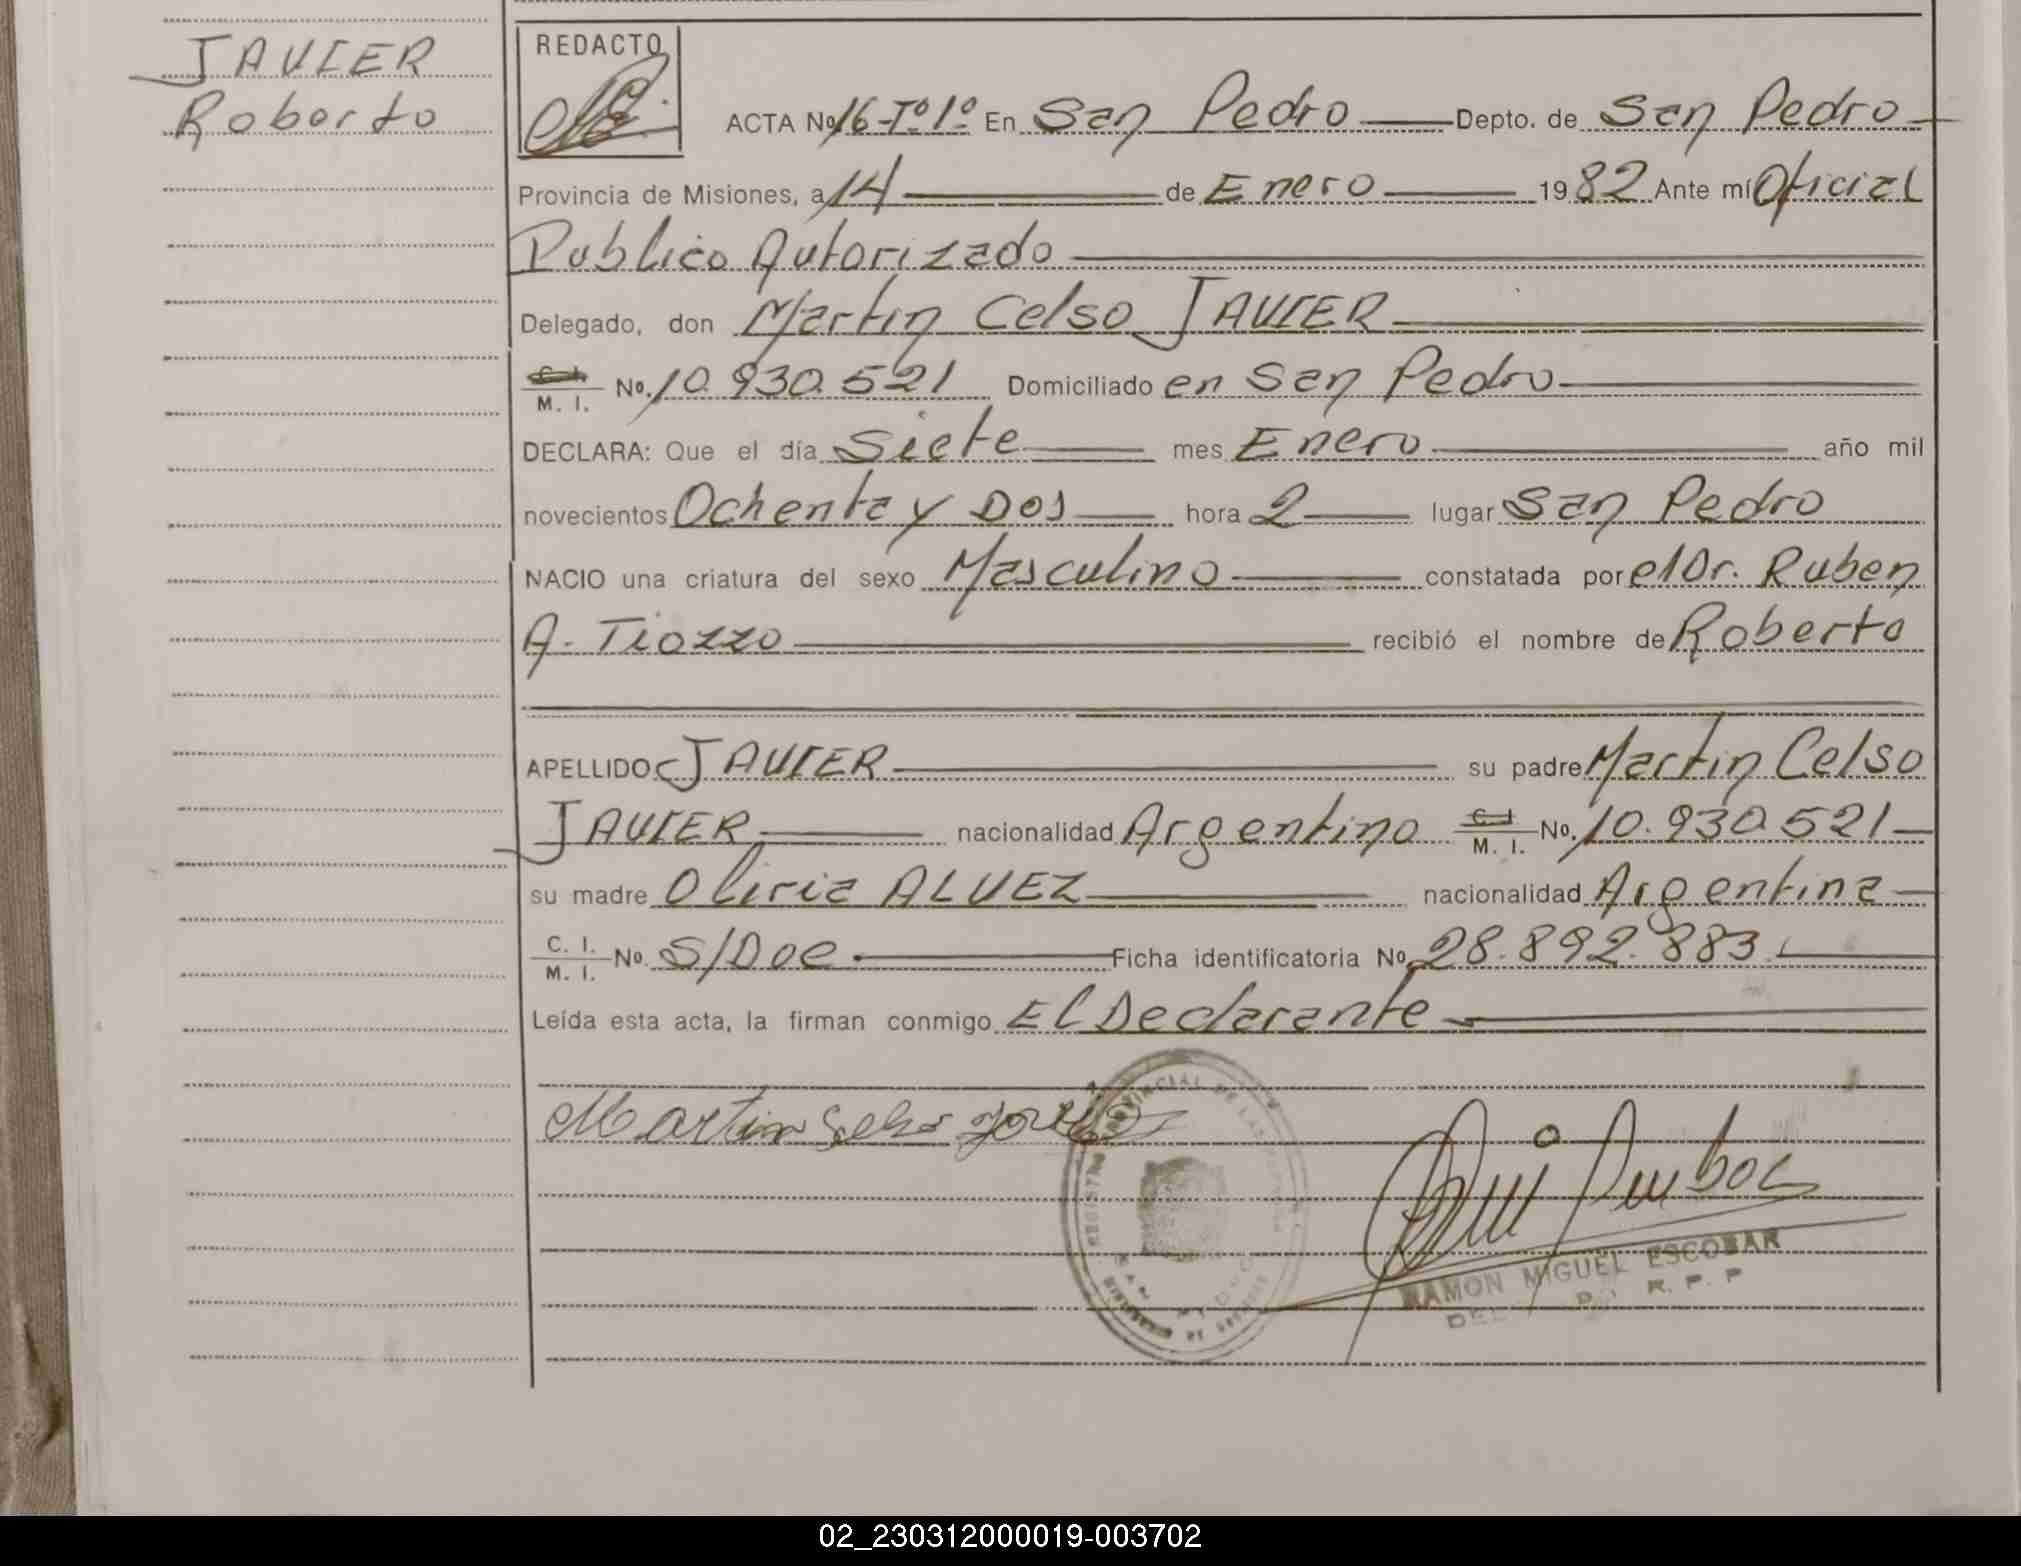 JAVIER
Roberto
REDACTO
ACTA No 16-Tº1º En San Pedro Depto. de San Pedro
Provincia de Misiones, a 14 de Enero 1982 Ante mí Oficial
Publico Autorizado
Delegado, don Martin Celso JAVIER
C. I. / M. I. No. 10.930.521 Domiciliado en San Pedro
DECLARA: Que el día Siete mes Enero año mil
novecientos Ochenta y Dos hora 2 lugar San Pedro
NACIO una criatura del sexo Masculino constatada por el Dr. Ruben
A. Tiozzo recibió el nombre de Roberto
APELLIDO JAVIER su padre Martin Celso
JAVIER nacionalidad Argentino C. I. / M. I. No. 10.930.521
su madre Oliria ALVEZ nacionalidad Argentina
C. I. / M. I. No. S/Doc Ficha identificatoria No. 28.892.883
Leída esta acta, la firman conmigo El Declarante
Martin Celso
REGISTRO PROVINCIAL DE LAS PERSONAS
RAMON MIGUEL ESCOBAR
R. P. P
02_230312000019-003702